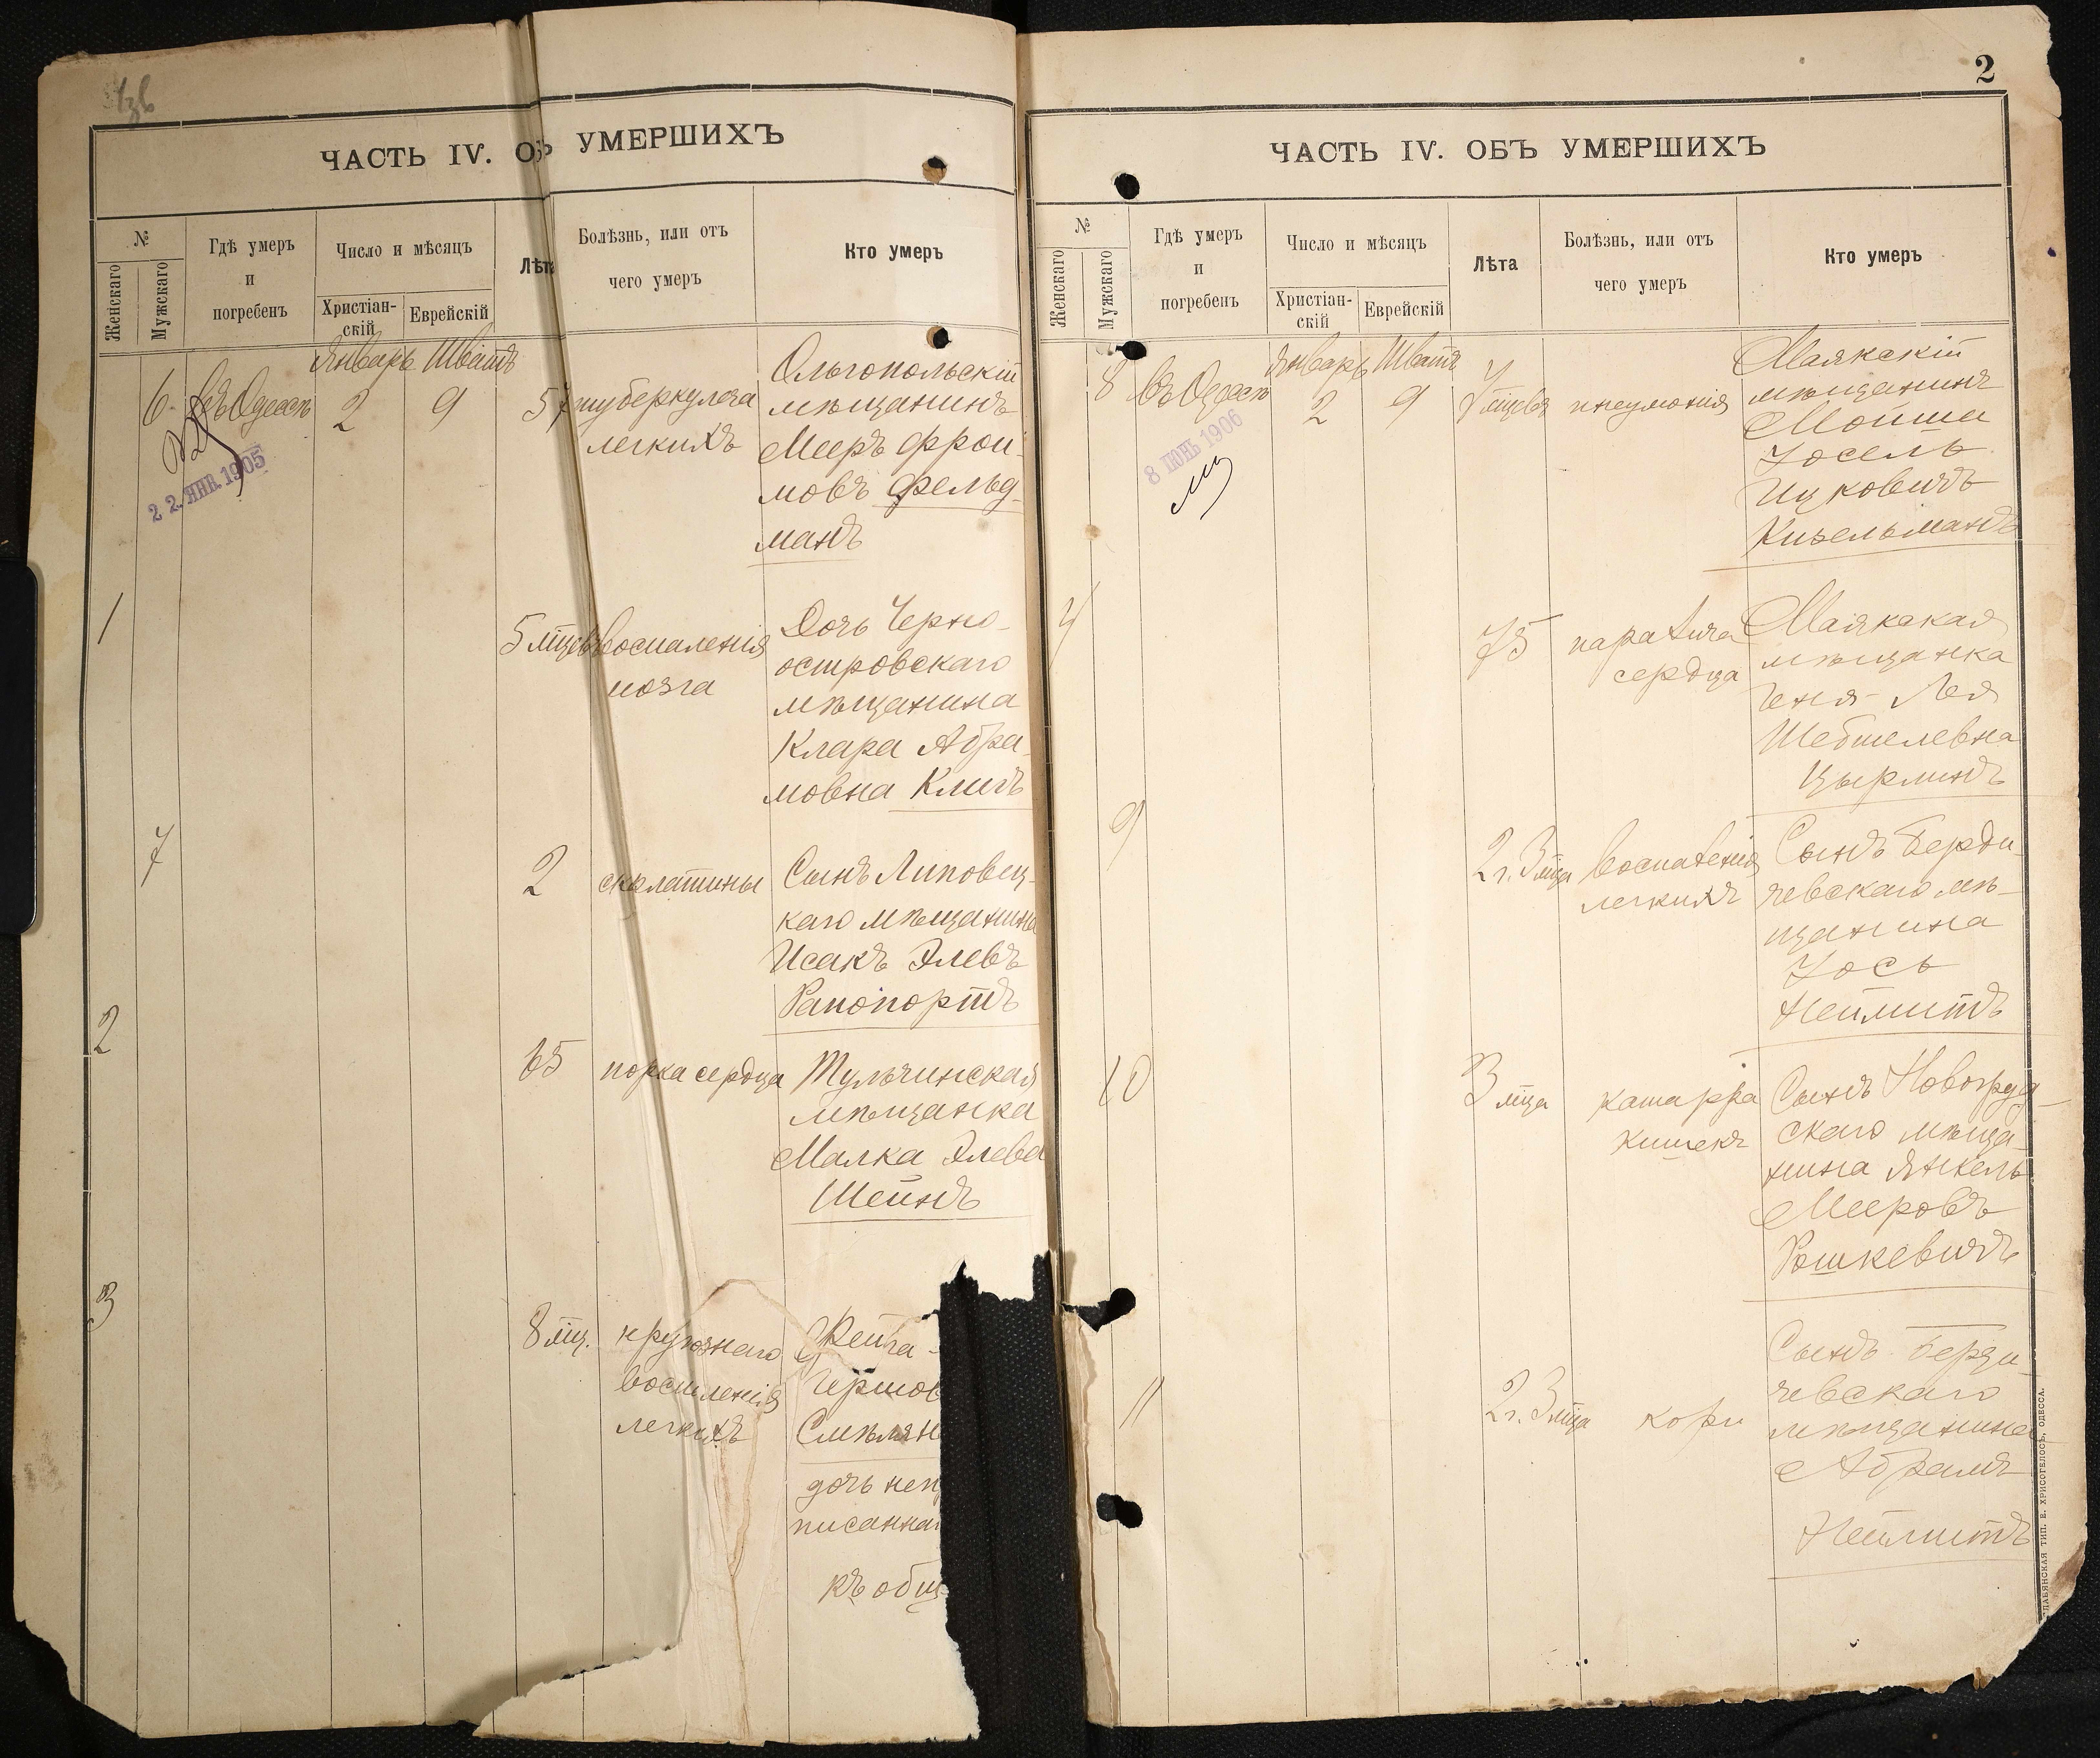 ЧАСТЬ IV. ОБЪ УМЕРШИХЪ
№
Женскаго
Мужскаго
Гдѣ умеръ
и
погребенъ
Число и мѣсяцъ
Христіан-
скій
Еврейскій
Лѣта
Болѣзнь, или отъ
чего умеръ
Кто умеръ
6.
въ Одессѣ
22 ЯНВ. 1905
Январь
2
Шватъ
9
57
туберкулеза
легкихъ
Ольгопольскій
мѣщанинъ
Мееръ Фрои-
мовъ Фельд-
манъ
1
5 мцевъ
воспаленія
мозга
Дочь Черно-
островскаго
мѣщанина
Клара Абра-
мовна Клигъ
7
2
скрлатины
Сынъ Липовец-
каго мѣщанина
Исакъ Элевъ
Рапопортъ
2
65
порка сердца
Тульчинская
мѣщанка
Малка Элева
Шейнъ
3
8 мц.
крупознаго
воспленія
легкихъ
Рейза-
Гершов
Смѣлян
дочь неп
писанна
къ общ
2
ЧАСТЬ IV. ОБЪ УМЕРШИХЪ
№
Женскаго
Мужскаго
Гдѣ умеръ
и
погребенъ
Число и мѣсяцъ
Христіан-
скій
Еврейскій
Лѣта
Болѣзнь, или отъ
чего умеръ
Кто умеръ
8
въ Одессѣ
8 ІЮНЬ 1906
Январь
2
Шватъ
9
мцевъ
пнеумонія
Маякскій
мѣщанинъ
Мойша
Іосель
Ицковичъ
Кизельманъ
4
75
паралича
сердца
Маякская
мѣщанка
Геня-Лея
Шебшелевна
Цырлинъ
9
2 г. 3 мца
воспаленія
легкихъ
Сынъ Берди-
чевскаго мѣ-
щанина
Іось
Неймитъ
10
3 мца
катарра
кишекъ
Сынъ Новогруд-
скаго мѣща-
нина Янкель
Мееровъ
Рошкевичъ
11
2 г. 3 мца
кори
Сынъ Берди-
чевскаго
мѣщанина
Абрамъ
Неймитъ
СЛАВЯНСКАЯ ТИП. Е. ХРИСОГЕЛОСЪ, ОДЕССА.